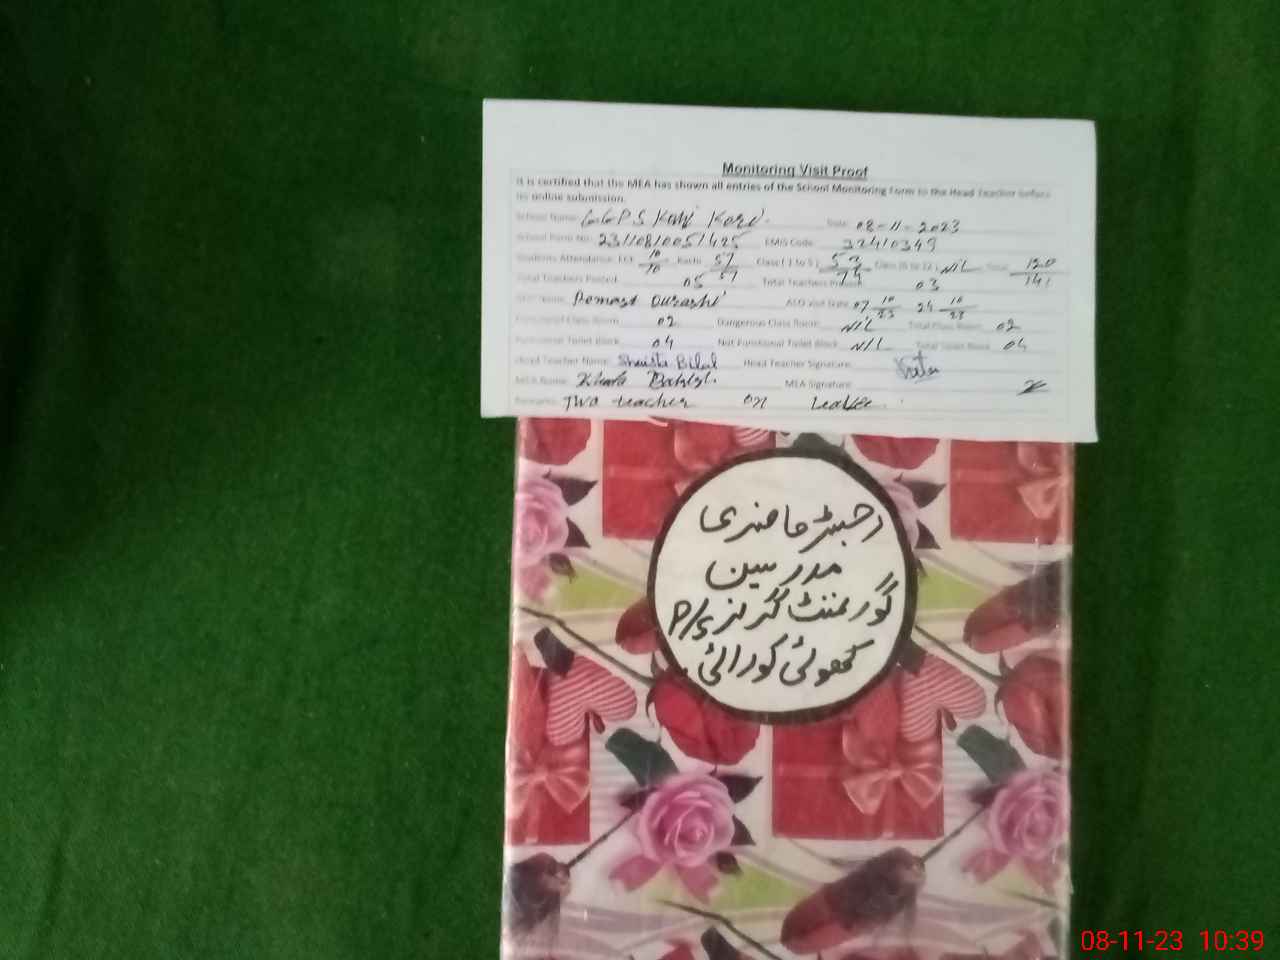 Monitoring Visit Proof
It is certified that the MEA has shown all entries of the School Monitoring Form to the Head Teacher before
its online submission.
School Name: GGPS Date: 08-11-2023
School Form No: EMIS Code: 32410349
Students Attendance: ECE 10/10 Kachi 57/57 Class (1 to 5) 53/74 Class (6 to 12) NIL Total 120/141
Total Teachers Posted 05 Total Teachers Present 03
AEO Name: AEO Visit Date 07 10/23 24 10/23
Functional Class Room 02 Dangerous Class Room NIL Total Class Room 02
Functional Toilet Block 04 Not Functional Toilet Block NIL Total Toilet Block 04
Head Teacher Name: Shaista Bilal Head Teacher Signature:
MEA Name: MEA Signature
Remarks: Two teacher on Leave.
رجسٹر حاضری
مدرسین
گورنمنٹ گرلز P/S
08-11-23 10:39